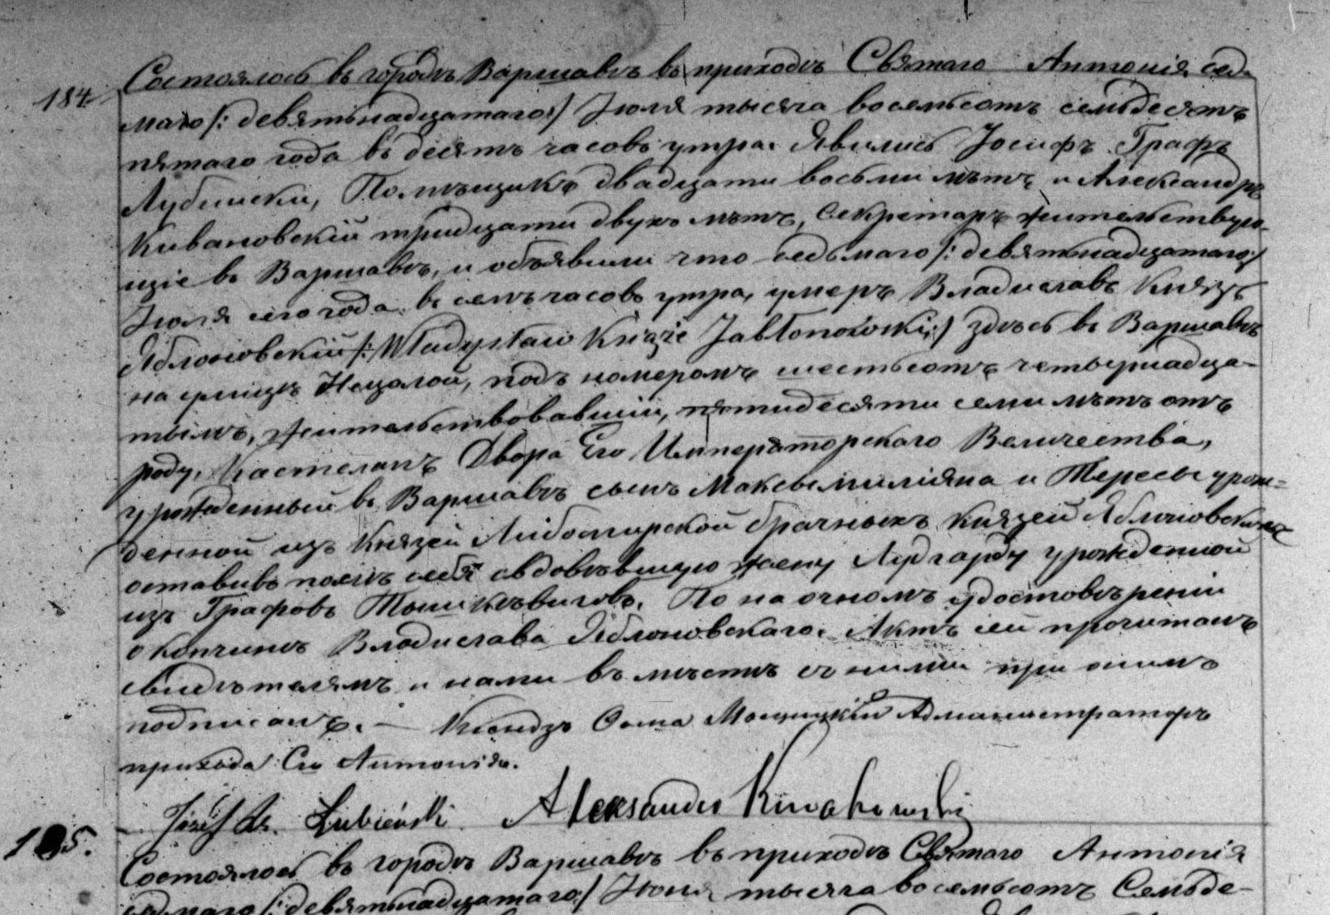 184
Состоялось въ городѣ Варшавѣ въ приходѣ Святаго Антонія, седь-
маго /: девятьнадцатаго:/ Іюля тысяча восемьсотъ семьдесятъ
пятаго года въ десять часовъ утра. Явились Іосифъ Графъ
Лубински, Помѣщикъ двадцати восьми лѣтъ и Александръ
тридцати двухъ лѣтъ, секретарь жительствую-
щіе въ Варшавѣ, и объявили что седьмаго /: девятнадцатаго:/
Іюля сего года въ семь часовъ утра, умеръ Владиславъ Князь
Яблоновскій /: Władysław Książe Jabłonowski:/ здѣсь въ Варшавѣ
на улицѣ Нецалой, подъ номеромъ шестьсотъ четырнадца-
тымъ, жительствовавшій, пятидесяти семи лѣтъ отъ
роду. Двора Его Императорскаго Величества,
урожденный въ Варшавѣ сынъ Максымиліяна и Тересы урож-
денной изъ Князей Любомирской брачныхъ Князей Яблоновскихъ
оставивъ послѣ себя овдовѣвшую жену Лудгарду урожденной
изъ Графовъ Тышкѣвичовъ. По на очномъ удостовѣреніи
о кончинѣ Владислава Яблоновскаго. Актъ сей прочитанъ
свидѣтелямъ и нами въ мѣстѣ съ ними при ономъ
подписанъ. — Ксендзъ Ѳома Администраторъ
прихода Св Антонія.
Józef Hr. Łubieński Aleksander
185.
Состоялось въ городѣ Варшавѣ въ приходѣ Святаго Антонія
седмаго /: девятьнадцатаго:/ тысяча восемьсотъ Семьде-